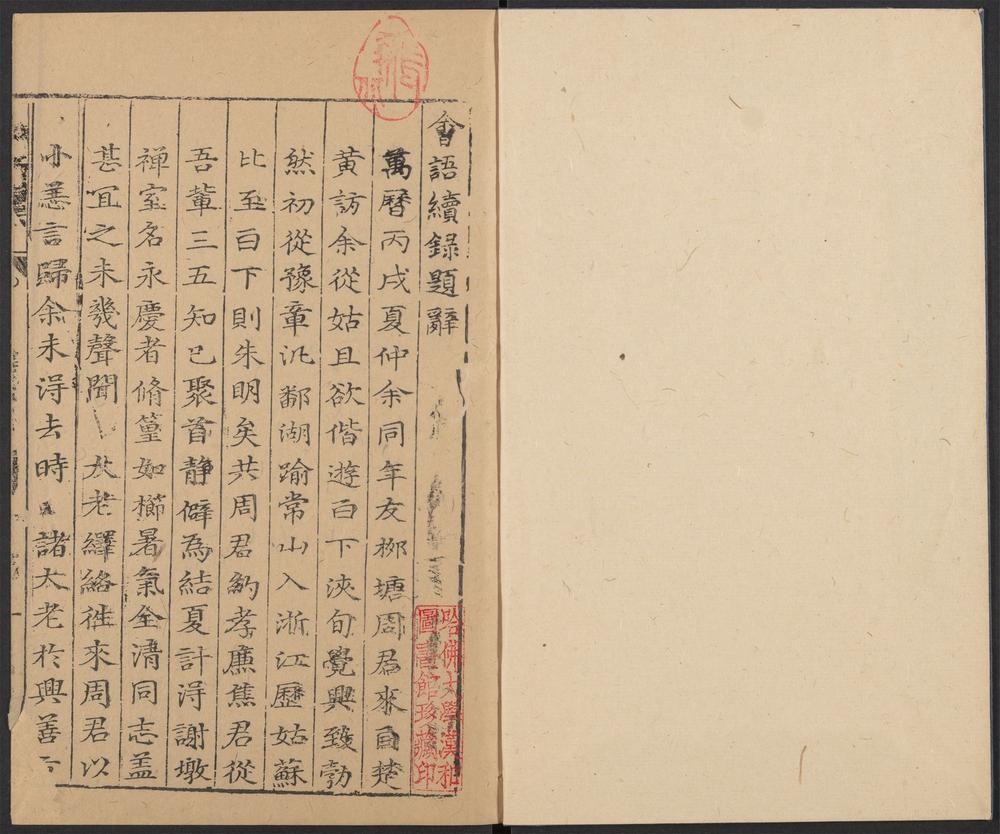 會語續錄題辭
萬曆丙戌夏仲余同年友栁塘周君來自楚
黃訪余從姑且欲偕遊白下浹旬覺興致勃
然初從豫章汎鄱湖踰常山入浙江歷姑蘇
比至白下則朱明矣共周君約孝廉焦君從
吾輩三五知已聚首静僻為結夏計淂謝墩
禅室名永慶者脩篁如櫛暑氣全清同志盖
甚冝之未幾聲聞 大老繹絡徃來周君以
小恙言歸余未淂去時 諸大老於興善
哈佛大學漢和
圖書館珍藏印